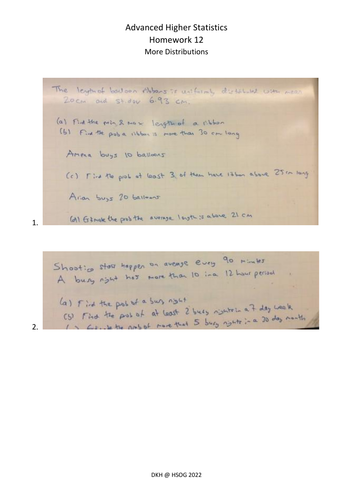 Advanced Higher Statistics
Homework 12
More Distributions
The length of balloon ribbons is uniformly distributed with mean
20cm and st dev 6.93 cm.
(a) Find the min & max length of a ribbon
(b) Find the prob a ribbon is more than 30 cm long
Ameera buys 10 balloons
(c) Find the prob at least 3 of them have ribbon above 25cm long
Arian buys 20 balloons
(d) Estimate the prob the average length is above 21 cm
1.
Shooting stars happen on average every 90 minutes
A busy night has more than 10 in a 12 hour period
(a) Find the prob of a busy night
(b) Find the prob of at least 2 busy nights in a 7 day week
the prob of more that 5 busy nights in a 30 day month
2.
DKH @ HSOG 2022